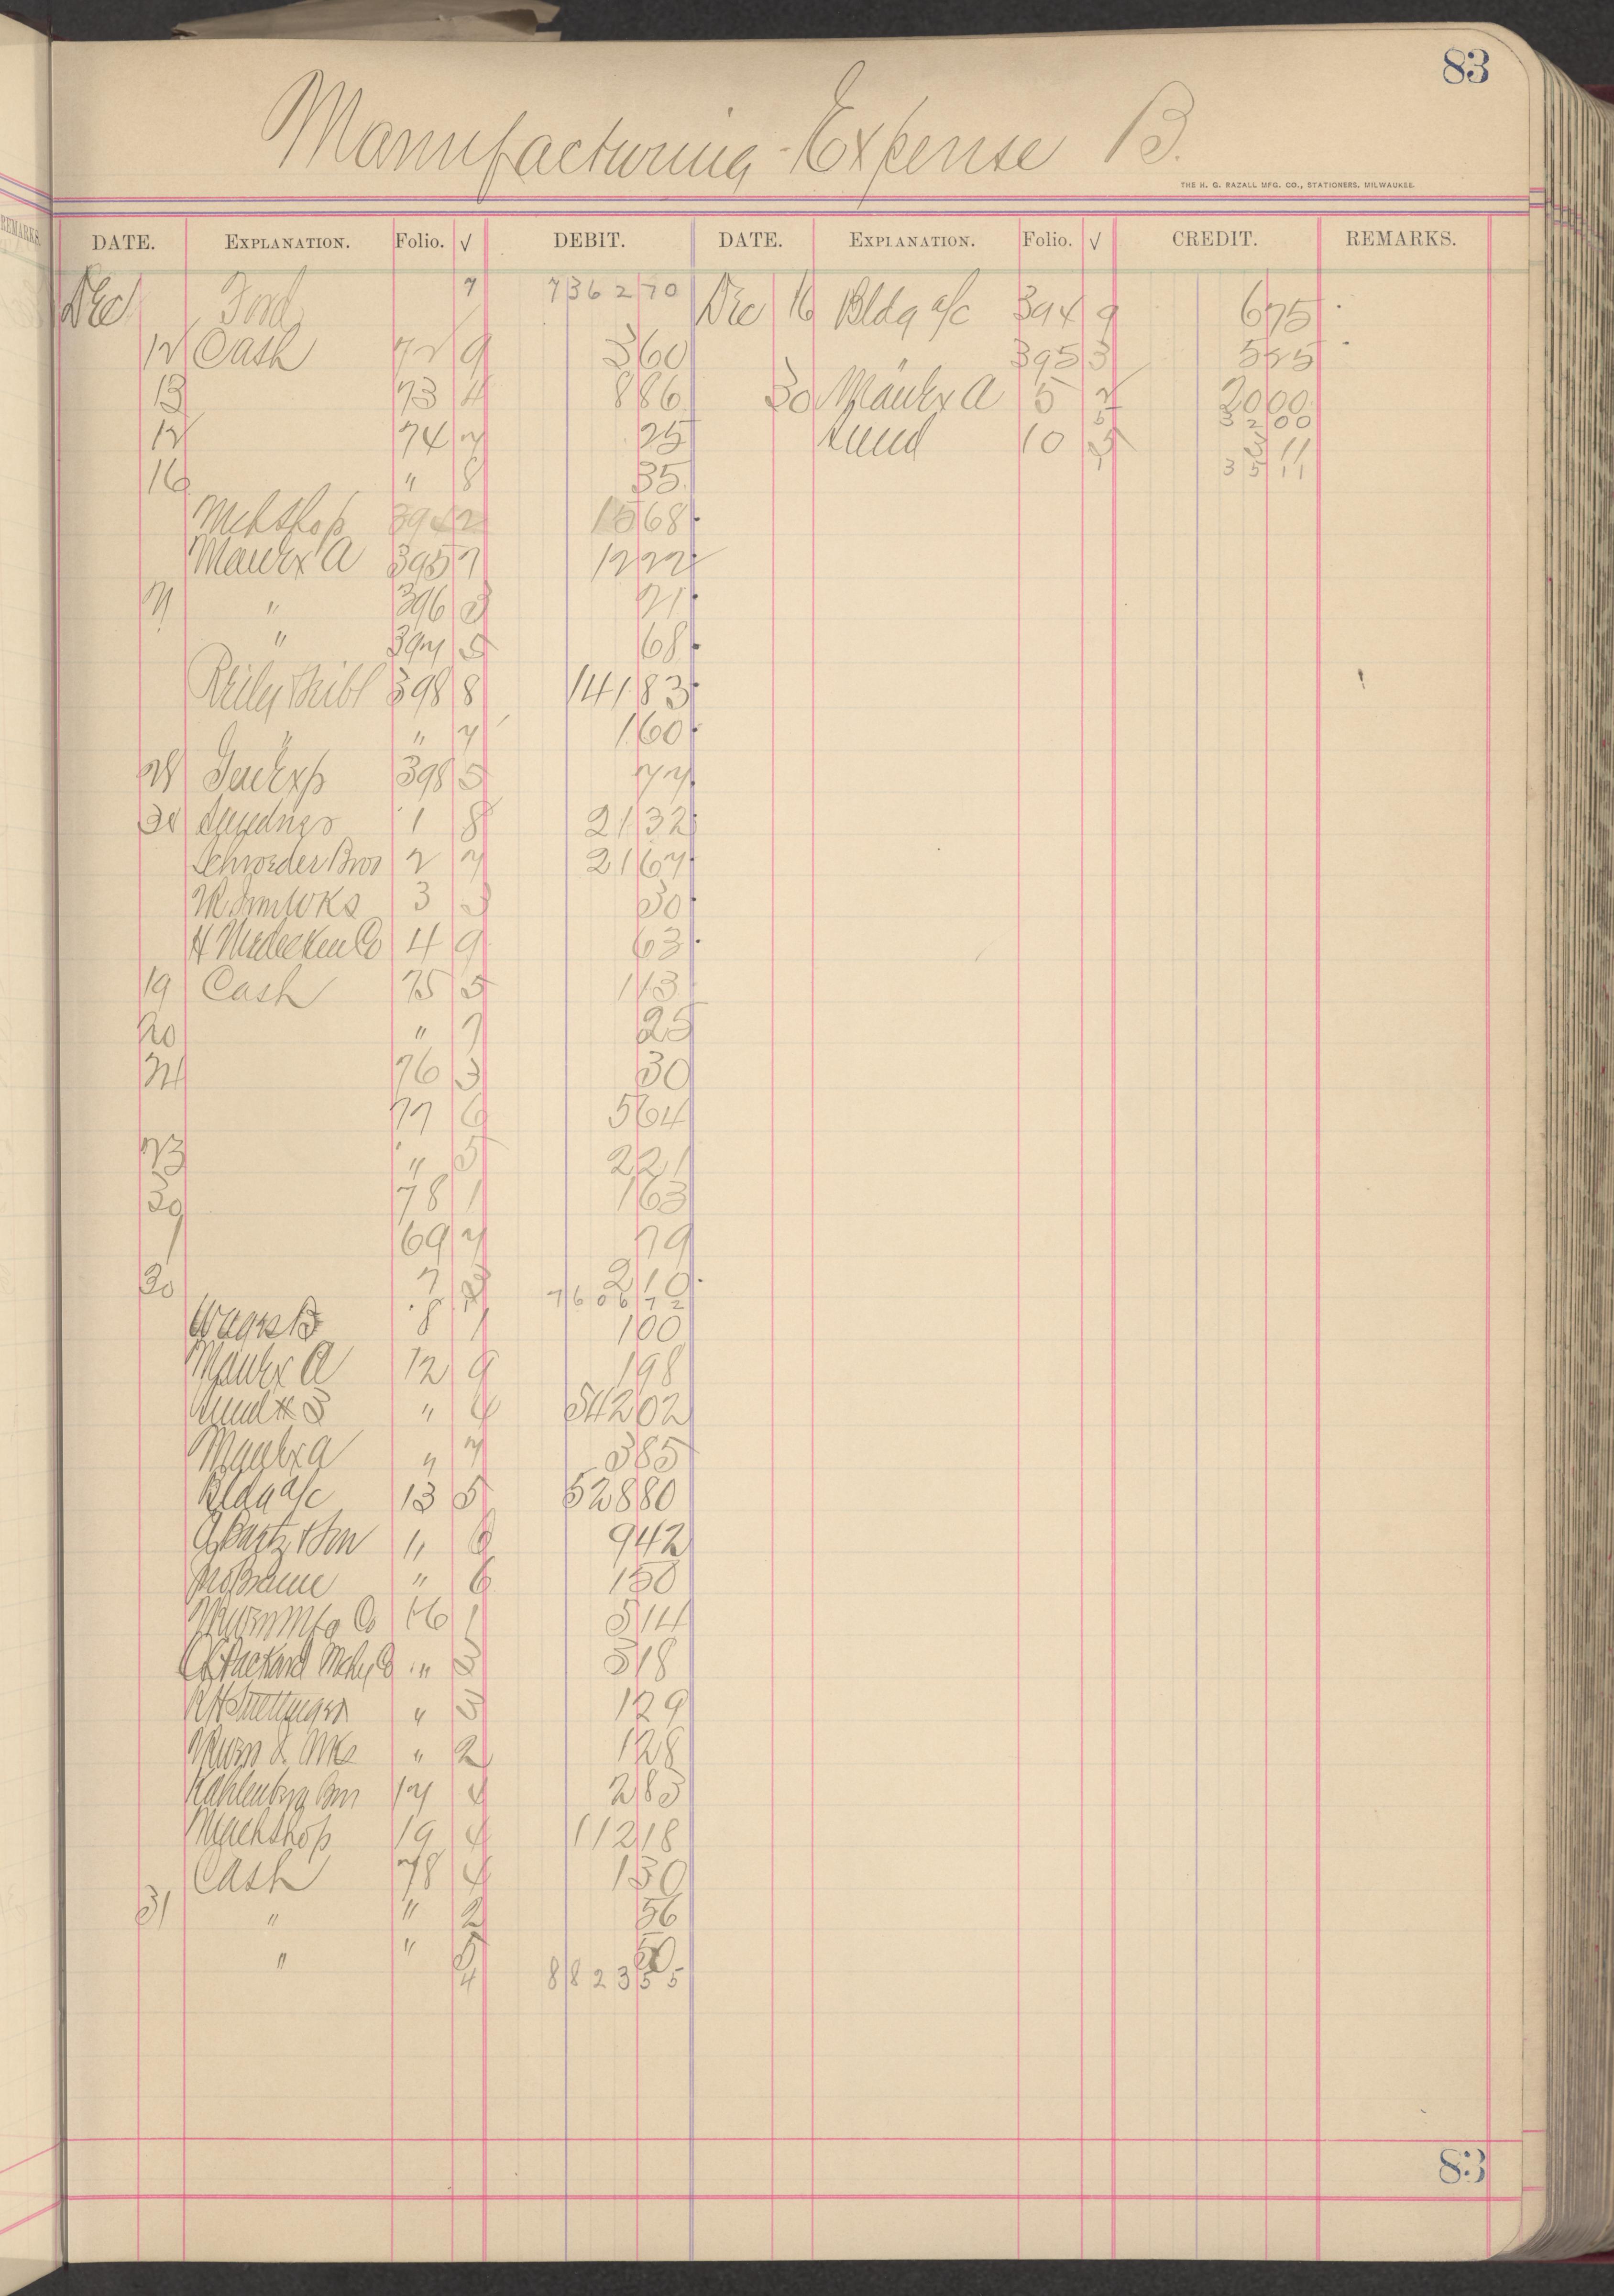 83
Manufacturing Expense B.
THE H. G. RAZALL MFG. CO., STATIONERS, MILWAUKEE.
DATE. EXPLANATION. Folio. √ DEBIT. DATE. EXPLANATION. Folio. √ CREDIT. REMARKS.
Dec Ford 7 7362 70 Dec 16 Bldg a/c 394 9 6 75
12 Cash 72 9 3 60 " 395 3 5 25
13 73 4 8 86 30 Manfex A 5 2 20 00
32 00
12 74 7 25 Sund 10 5 3 11
35 11
16 " 8 35
Mchshop 394 2 15 68
Manfex A 395 7 12 22
21 " 396 3 21
" 397 5 68
398 8 141 83
" " 7 1 60
28 Genexp 398 5 77
30 Sundries 1 8 21 32
Schroeder Bros 2 7 21 67
3 3 30
4 9 63
19 Cash 75 5 1 13
20 " 7 25
24 76 3 30
77 6 5 64
23 " 5 2 21
30 78 1 1 63
1 69 7 79
30 7 3 2 10
7606 72
Wages B 8 1 1 00
Manfex A 12 9 1 98
Sund # 3 " 4 542 02
Manfex A " 7 3 85
Bldg a/c 13 5 528 80
" 6 9 42
" 6 1 50
Mfg Co 16 1 5 14
Packard Mchy Co " 3 3 18
" 3 1 29
" 2 1 28
Kahlenberg Bros 17 4 2 83
Machshop 19 4 112 18
Cash 78 4 1 30
31 " " 2 56
" " 5 50
4 8823 55
83